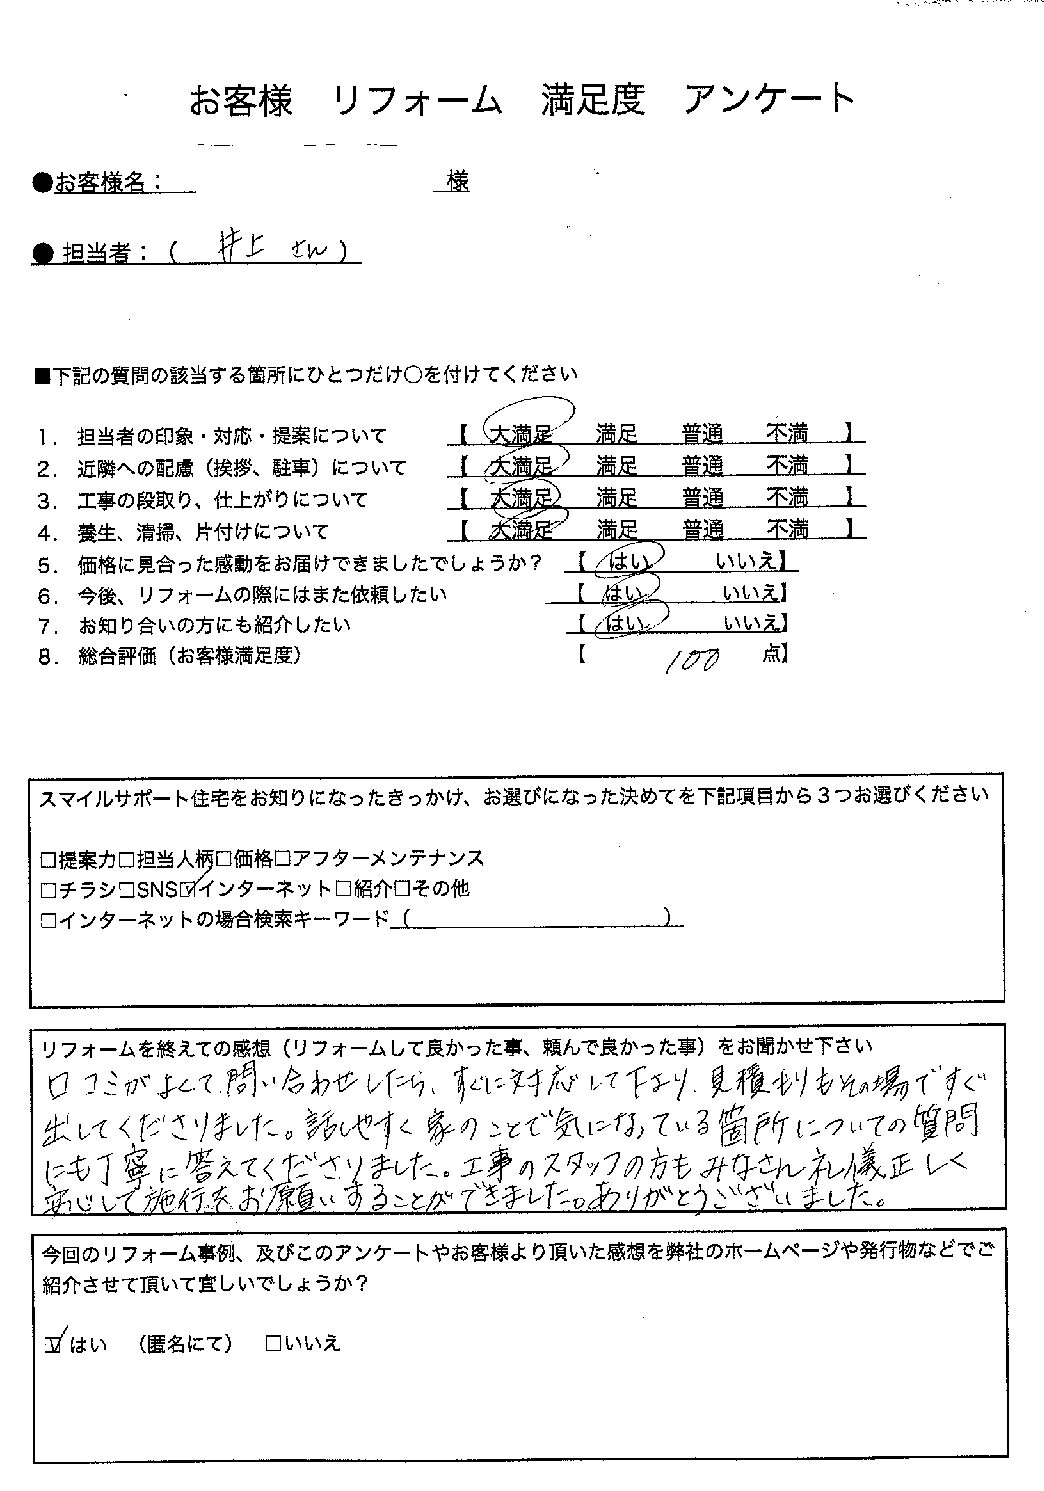 お客様　リフォーム　満足度　アンケート
●お客様名：　　　　　　様
● 担当者：（ 井上 さん ）
■下記の質問の該当する箇所にひとつだけ〇を付けてください
1． 担当者の印象・対応・提案について 【 大満足 満足 普通 不満 】
2． 近隣への配慮（挨拶、駐車）について 【 大満足 満足 普通 不満 】
3． 工事の段取り、仕上がりについて 【 大満足 満足 普通 不満 】
4． 養生、清掃、片付けについて 【 大満足 満足 普通 不満 】
5． 価格に見合った感動をお届けできましたでしょうか？ 【 はい いいえ】
6． 今後、リフォームの際にはまた依頼したい 【 はい いいえ】
7． お知り合いの方にも紹介したい 【 はい いいえ】
8． 総合評価（お客様満足度） 【 100 点】
スマイルサポート住宅をお知りになったきっかけ、お選びになった決めてを下記項目から３つお選びください
□提案力□担当人柄□価格□アフターメンテナンス
□チラシ□SNS☑インターネット□紹介□その他
□インターネットの場合検索キーワード（　　　　　　）
リフォームを終えての感想（リフォームして良かった事、頼んで良かった事）をお聞かせ下さい
口コミがよくて、問い合わせしたら、すぐに対応して下さり、見積もりもその場ですぐ
出してくださりました。話しやすく家のことで気になっている箇所についての質問
にも丁寧に答えてくださりました。工事のスタッフの方もみなさん礼儀正しく
安心して施行をお願いすることができました。ありがとうございました。
今回のリフォーム事例、及びこのアンケートやお客様より頂いた感想を弊社のホームページや発行物などでご
紹介させて頂いて宜しいでしょうか？
☑はい （匿名にて） □いいえ